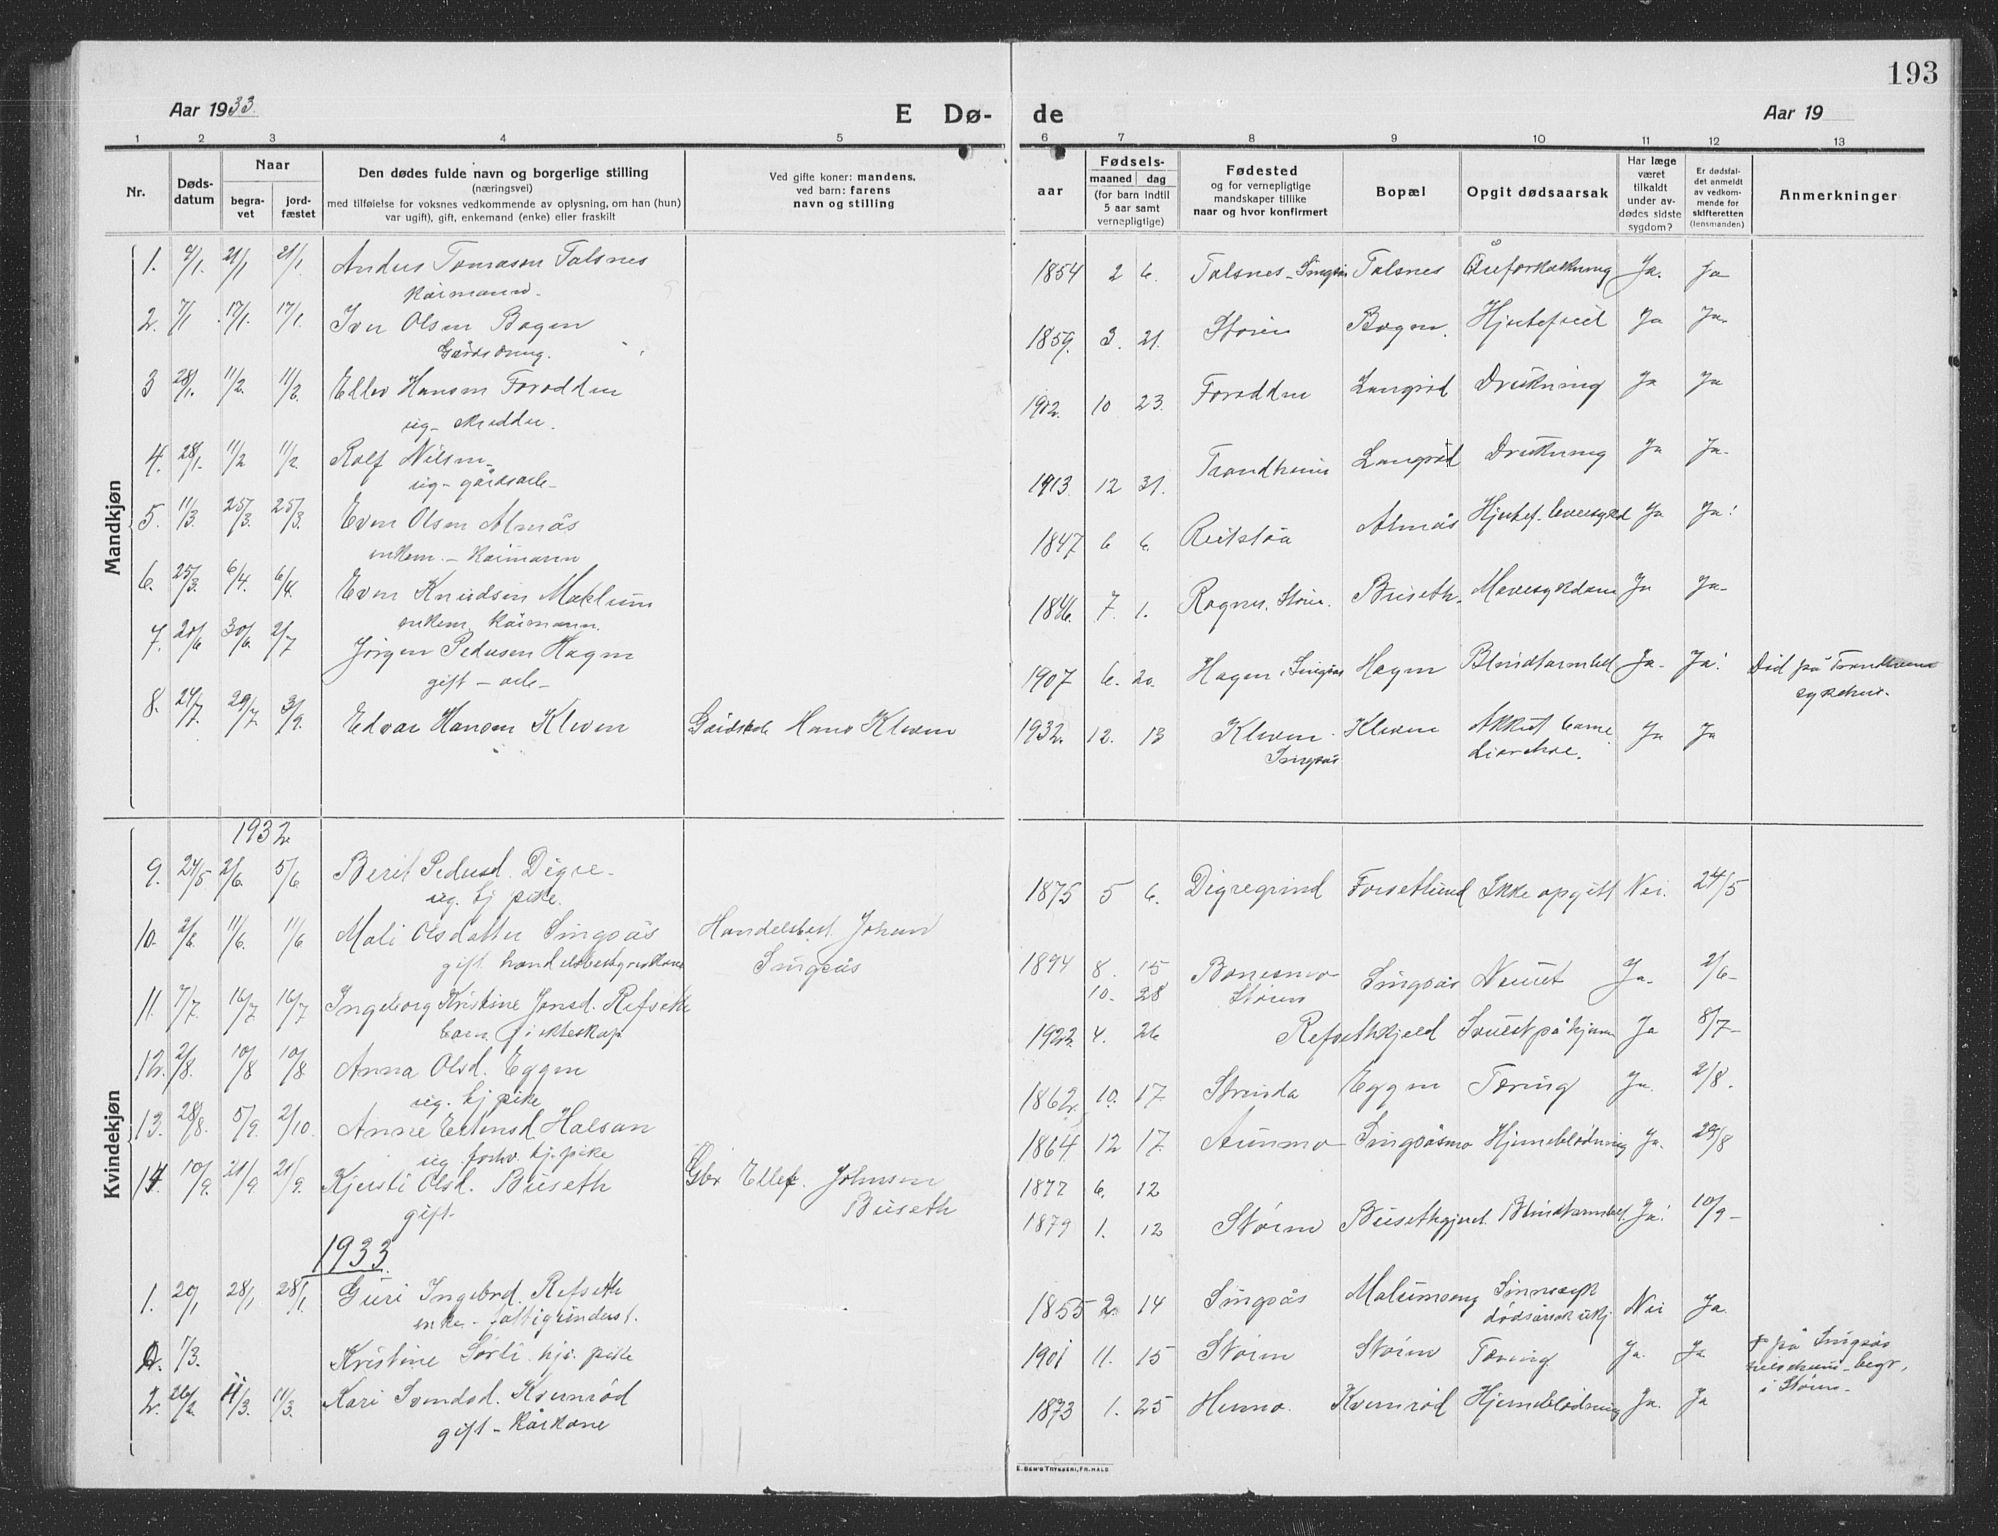 193
Aar 1933.
E Dø-
de
Aar 19
1 2 3 4 5 6 7 8 9 10 11 12 13
Nr.
Døds-
datum
Naar
begra-
vet
jord-
fæstet
Den dødes fulde navn og borgerlige stilling
(næringsvei)
med tilføielse for voksnes vedkommende av oplysning, om han (hun)
var ugift), gift, enkemand (enke) eller fraskilt
Ved gifte koner: mandens,
ved barn: farens
navn og stilling
aar
Fødsels-
maaned dag
(for barn indtil
5 aar samt
vernepligtige)
Fødested
og for vernepligtige
mandskaper tillike
naar og hvor konfirmert
Bopæl
Opgit dødsaarsak
Har læge
været
tilkaldt
under av-
dødes sidste
sygdom?
Er dødsfal-
det anmeldt
av vedkom-
mende for
skifteretten
(lensmanden)
Anmerkninger
Mandkjøn
1. 21/1 21/1 Tomasen Folsnes 1854 2 6. Folsnes - Singsås Folsnes Åreforkalkning Ja. Ja
Kårmann.
2. 7/1 17/1. 17/1. Iver Olsen Bogen 1859. 3. 21. Støren Bogen. Hjertefeil Ja Ja.
3 28/1. 11/2. 11/2. Ellev Hansen Forodden 1912. 10 23. Forodden Langrød Drukning Ja Ja
ug-
4. 28/1. 11/2 11/2. Rolf Nilsen 1913. 12 31. Trondheim Langrød Drukning Ja Ja.
ug - gårdsarb-
5. 11/3. 25/3. 25/3. Even Olsen Almås 1847 6 6. Reitstøa Almås Ja Ja.
enkem. - Kårmann
6. 25/3. 6/4. 6/4. Even Knudsen 1846. 7. 1. Rognes. Støren. Buseth. Mavesykdom Ja Ja.
enkem. Kårmann.
7. 20/6 30/6. 2/7 Jørgen Pedersen Hagen 1907 6. 20. Hagen, Singsås Hagen Blindtarmbet Ja. Ja. Død på Trondheim
gift - arb- sykehus.
8. 24/7. 29/7. 3/9. Edvar Hansen Kleven Hans Kleven 1932. 12. 13 Kleven. Kleven Akkut Ja Ja
Singsås
Kvindekjøn
1932
9. 24/5 2/6. 5/6 Berit Pedersd. Digre 1875 5 6. Digregrind Forsetlund Ikke opgitt Nei. 24/5
ug. hj pike.
10. 2/6. 11/6. 11/6 Mali Olsdatter Singsås Handelsbest. Johan 1894 8. 15 Bonesmo Singsås Ja. 2/6-
gift. Singsås 10. 28 Støren
11. 7/7. 16/7 16/7 Ingeborg Kristine Jonsd. Refseth 1922. 4. 26 Refsethkjeld Ja 8/7-
barn f. i ekteskap
12. 2/8. 10/8 10/8 Anna Olsd. Eggen 1862. 10. 17 Strinda Eggen Tæring Ja. 2/8.
ug. hj pike
13. 28/8. 5/9. 2/10. Anne Halsan 1864. 12 17. Aunmo Singsåsmo Hjerneblødning Ja. 29/8
ug forhv. hj. pike
14 10/9. 21/9 21/9. Kjersti Olsd. Buseth Gbr Ellef. Johnsen 1877 6. 12
gift. Buseth 1879 1. 12 Støren Blindtarmbet Ja. 10/9-
1933.
1. 20/1 28/1 28/1 Guri Ingebrd. Refseth 1855 2. 14 Singsås Sinnssyk Nei Ja.
enke -
2. 1/3. Kristine Sørli. hj. pike 1901 11. 15 Støren Støren Tæring Ja. Ja på Singsås
begr.
i Støren.
2. 26/2 11/3. 11/3. Kari Svendsd. Kvernrød 1873 1. 25 Kvernrød Hjerneblødning Ja. Ja
gift - Kårkone
E. SEM'S TRYKKERI, FR.HALD